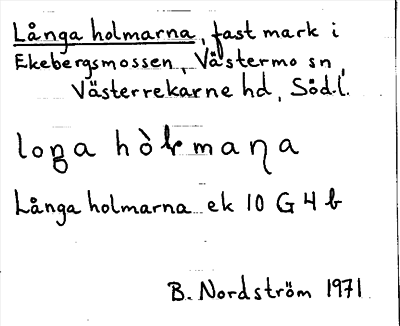 Långa holmarna, fast mark i
Ekebergsmossen, Västermo sn,
Västerrekarne hd, Södl.
Långa holmarna ek 10 G 4 b
B. Nordström 1971